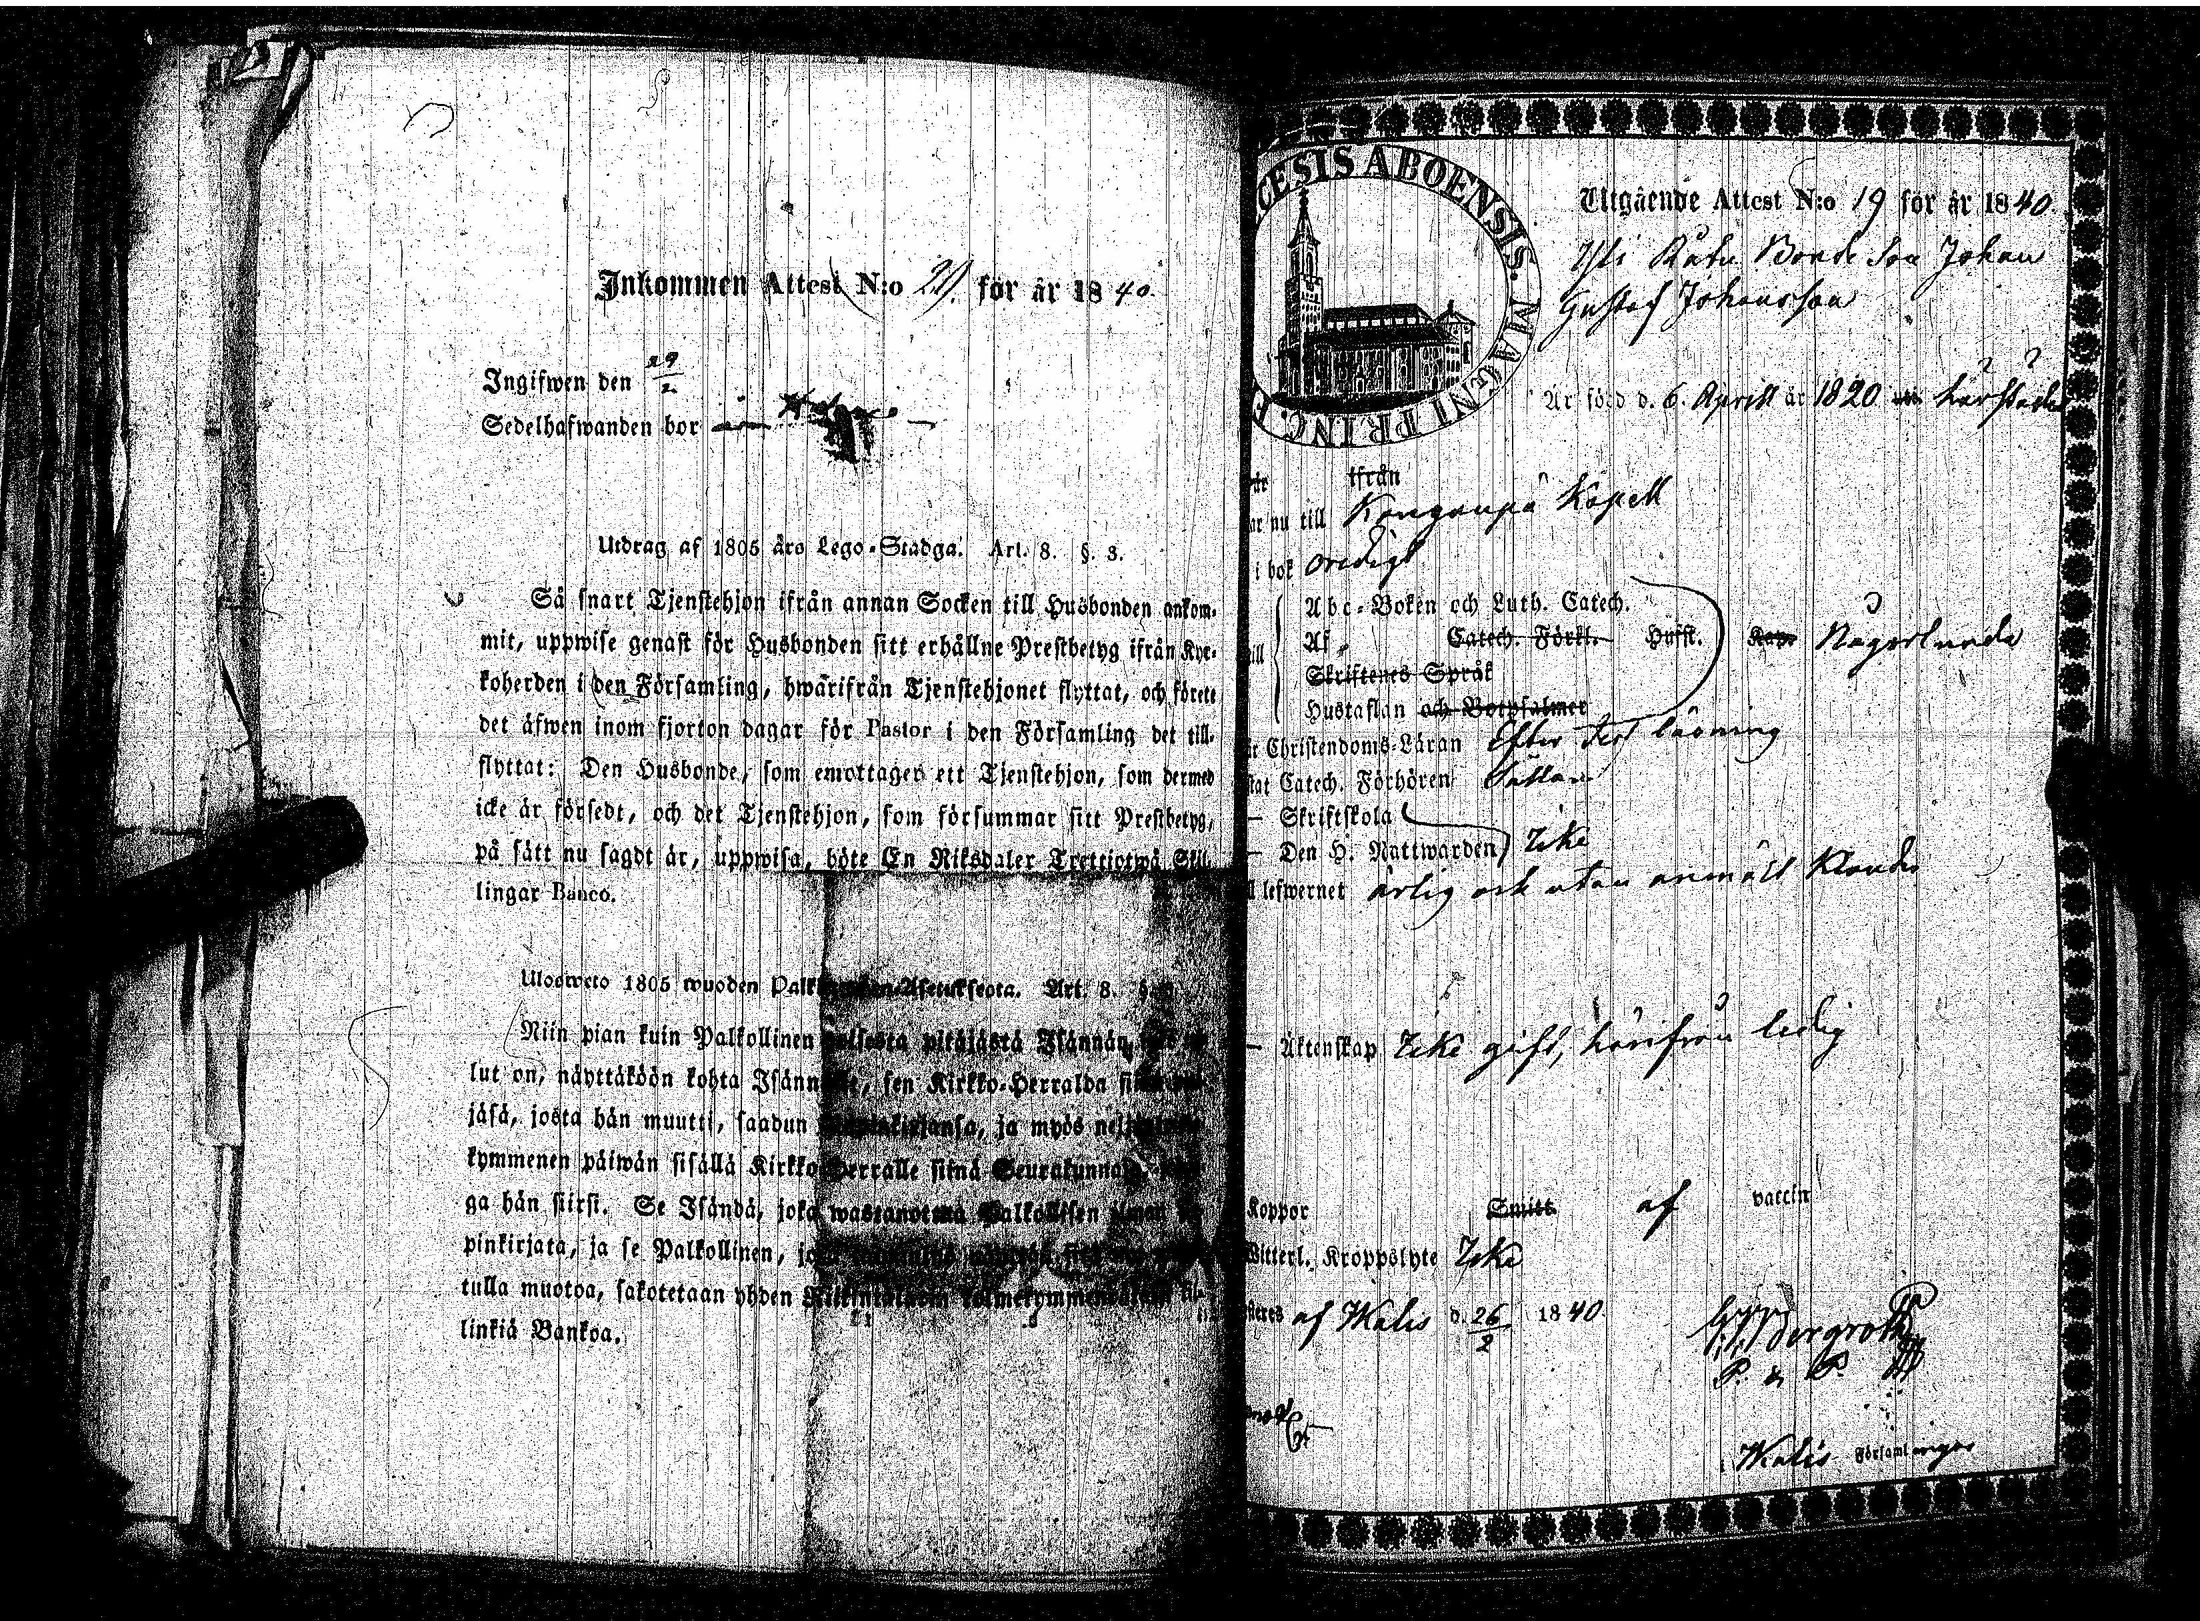 Inkommen Attest N:o 20. för år 1840.
Ingifwen den 29/2
Sedelhafwanden bor
Utdrag af 1805 års Lego-Stadga. Art. 8. §. 3.
Så snart Tjenstehjon ifrån annan Socken till Husbonden ankom-
mit, uppwise genast för Husbonden sitt erhållne Prestbetyg ifrån Kyr-
koherden i den Församling, hwarifrån Tjenstehjonet flyttat, och förete
det äfwen inom fjorton dagar för Pastor i den Församling det till-
flyttat: Den Husbonde, som emottager ett Tjenstehjon, som dermed
icke är försedt, och det Tjenstehjon, som försummar sitt Prestbetyg,
på sätt nu sagdt är, uppwisa, böte En Riksdaler Trettiotwå Skil-
lingar Banco.
Ulosweto 1805 wuoden Art. 8.
Niin pian kuin Palkollinen toisesta pitäjästä Isännän
lut on, näyttäköön kohta Isännälle, sen Kirkko-Herralda siinä
jäsä, josta hän muutti, saadun Papinkirjansa, ja myös
kymmenen päiwän sisällä Kirkko-Herralle siinä Seurakunnasa,
ga hän siirsi. Se Isändä, joka wastanottaa Palkollisen ilman
pinkirjata, ja se Palkollinen,
tulla muotoa, sakotetaan yhden Riksintalarin kolmekymmentä sil-
linkiä Bankoa.
CESIS ABOENSIS. MAGNI PRINC. F
Utgående Attest N:o 19 för år 1840.
Bonde Son Johan
Gustaf Johansson
Är född d. 6. Aprill år 1820 härstädes
ifrån
nu till Kapell
i bok oredigt
Abc-Boken och Luth. Catech.
Af Catech. Förkl. Husst. Någorlunda
Skriftenes Språk
Hustaflan och Botpsalmer
Christendoms-Läran Efter läsning
Catech. Förhören Sällan
— Skriftskola
— Den H. Nattwarden Icke
lefwernet ärlig och utan anmäldt Klander
— Äktenskap Icke gift, härifrån ledig
Koppor Smitt af vaccin
Witterl. Kroppslyte Icke
af Wälis d. 26/2 1840.
Bergroth
P. & P.
Wälis Församlingar